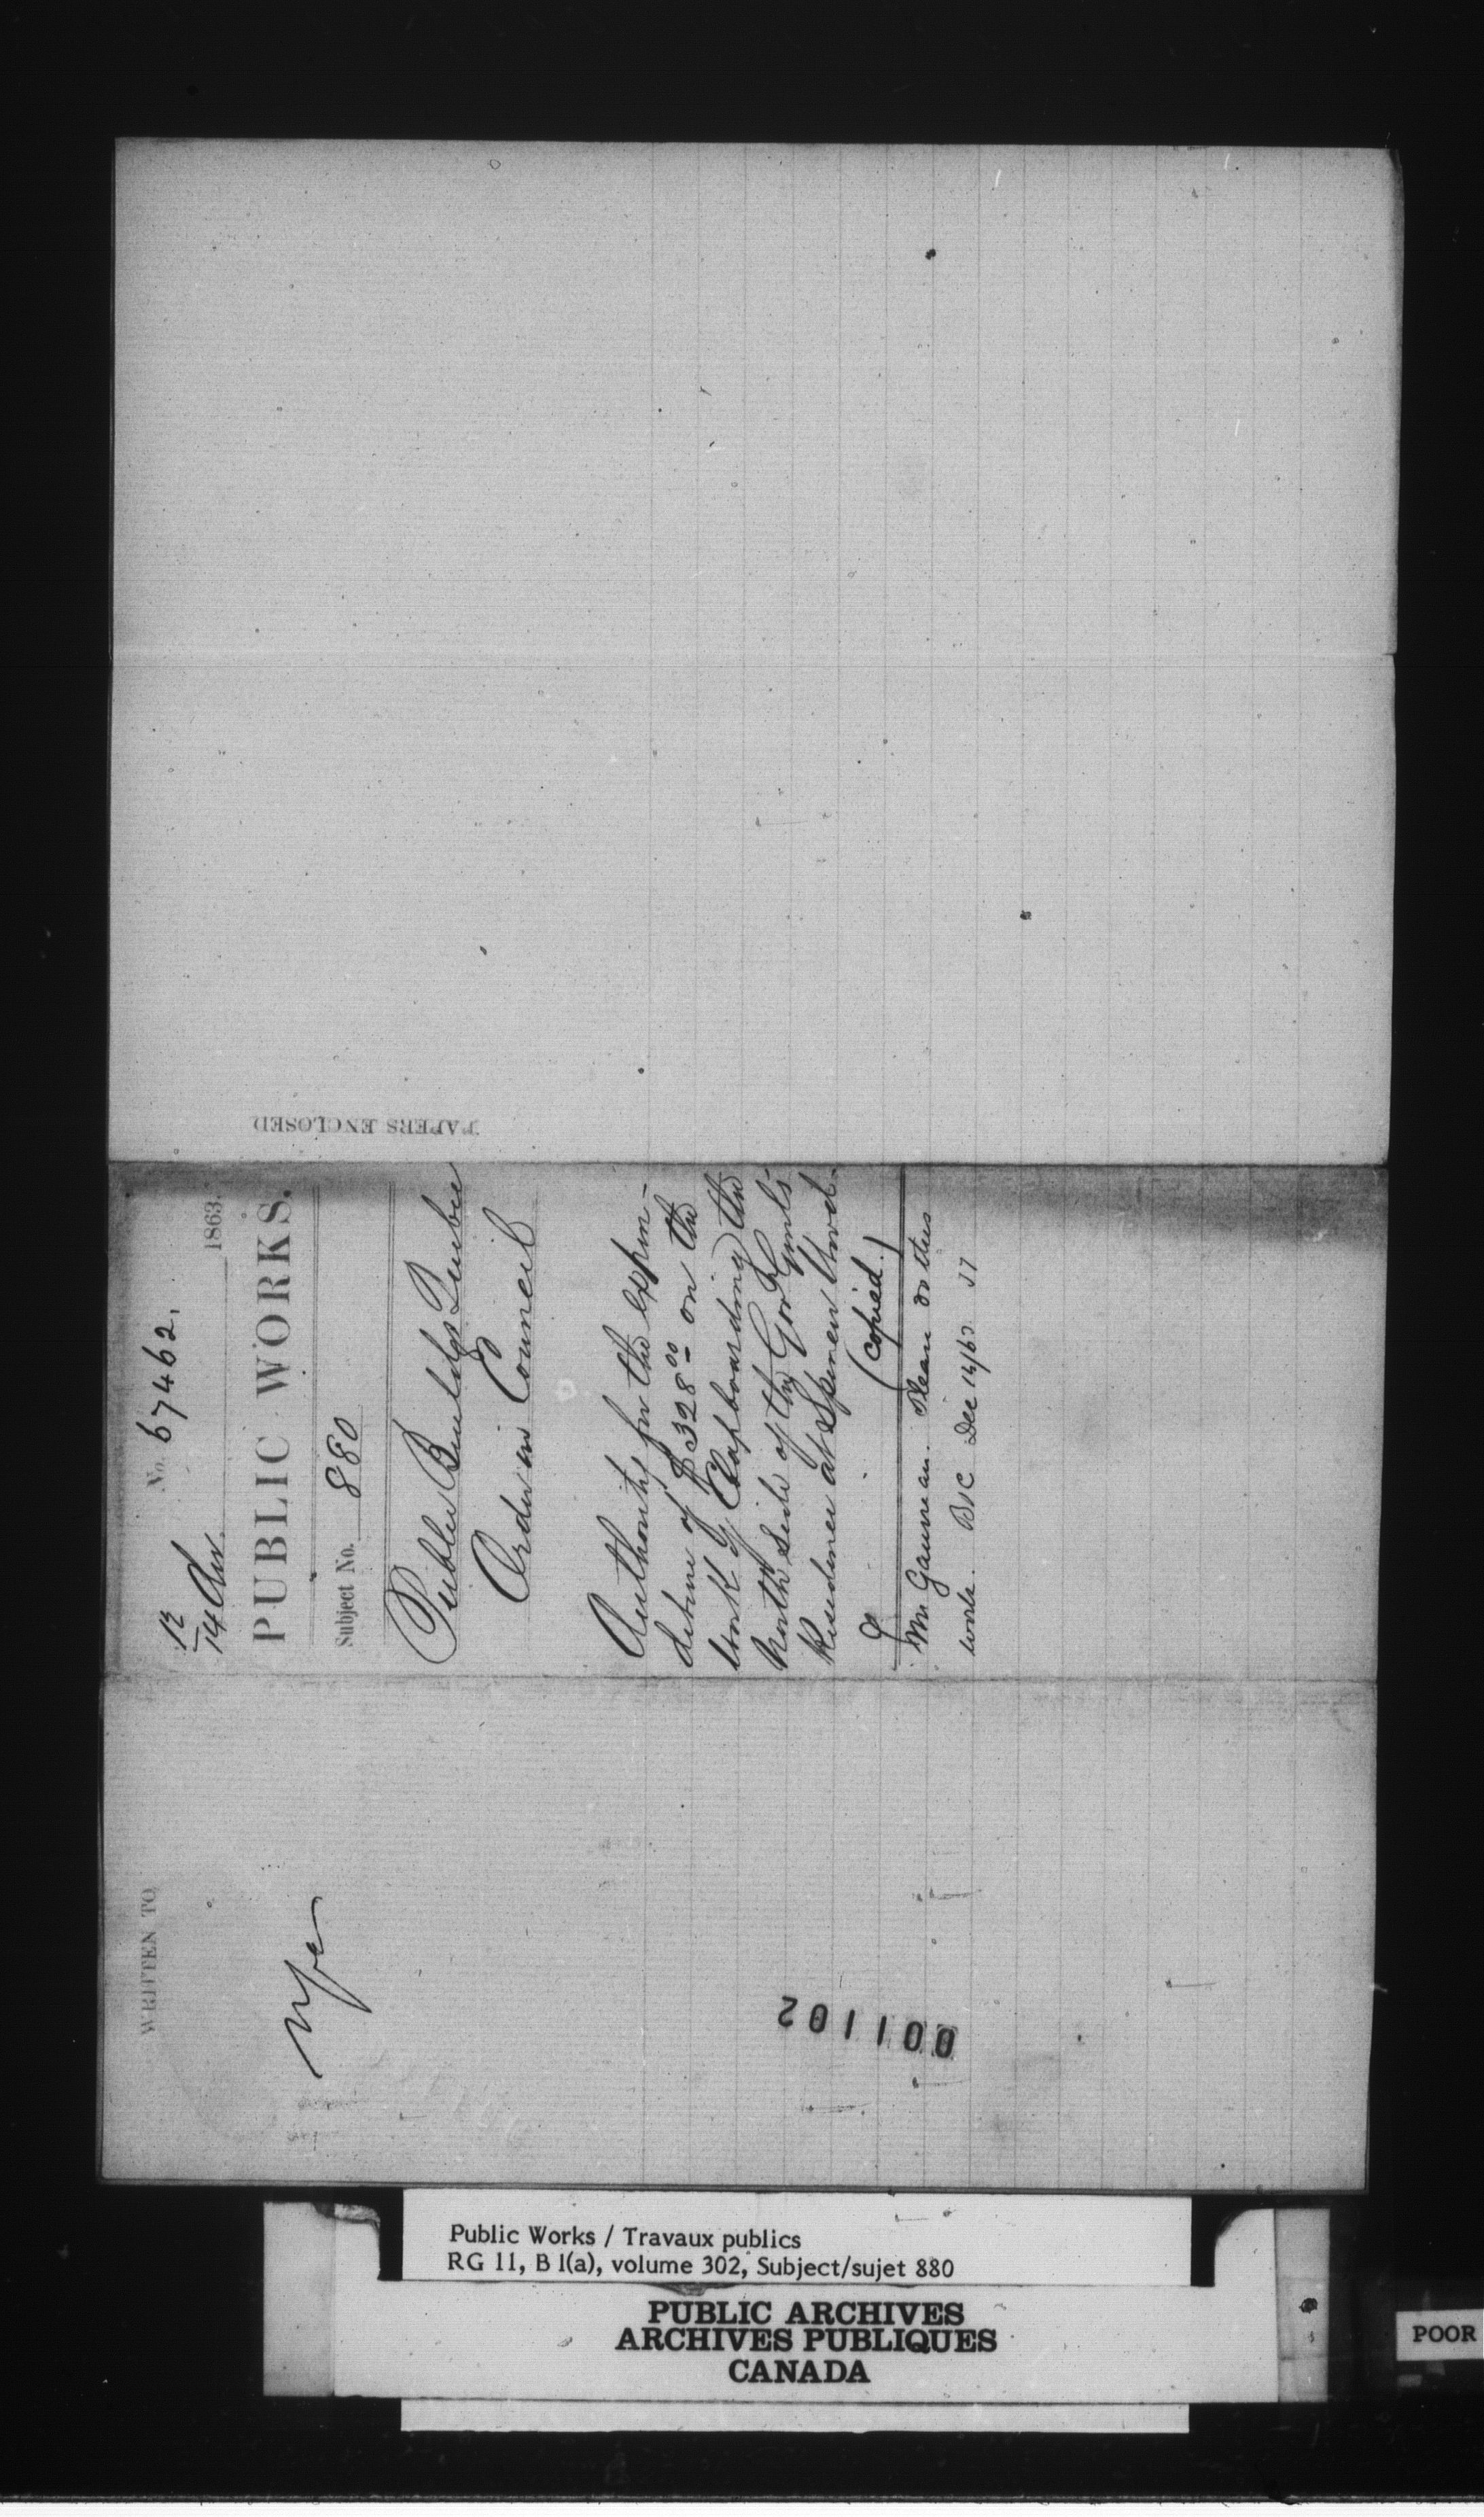 No. 67462.
12/14 Dec. 1863.
PUBLIC WORKS.
Subject No. 880
Public Buildgs Quebec
Order in Council
Authority for the expen-
diture of $328.00 on the
work of Clapboarding the
North Side of the Gov Genl's
Residence at Spencer Wood.
(Copied.)
Mr Gauvreau. Please do this
work. Dec 14/63 JT
PAPERS ENCLOSED
WRITTEN TO
001102
Public Works / Travaux publics
RG 11, B 1(a), volume 302, Subject/sujet 880
PUBLIC ARCHIVES
ARCHIVES PUBLIQUES
CANADA
POOR